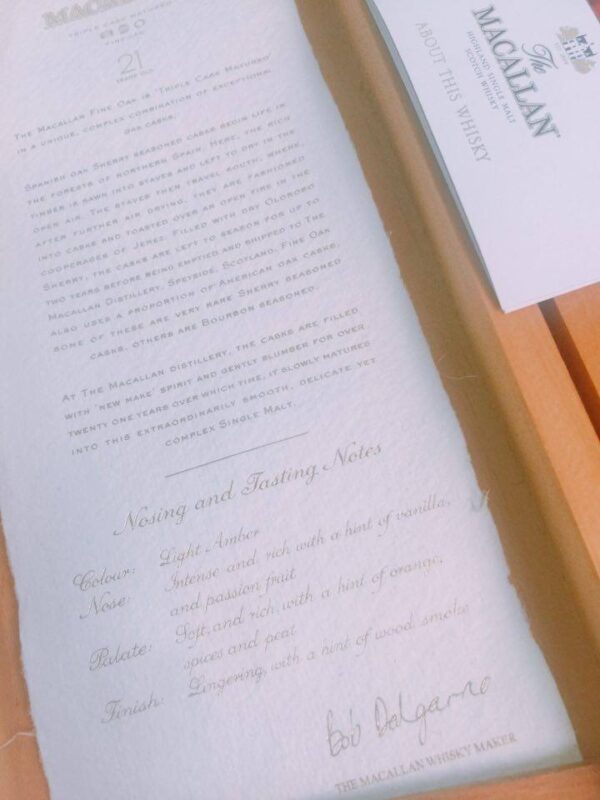 MACALLAN
TRIPLE CASK MATURED
FINE OAK
21
YEARS OLD
THE MACALLAN FINE OAK IS 'TRIPLE CASK MATURED'
IN A UNIQUE, COMPLEX COMBINATION OF EXCEPTIONAL
OAK CASKS.
SPANISH OAK SHERRY SEASONED CASKS BEGIN LIFE IN
THE FORESTS OF NORTHERN SPAIN. HERE, THE RICH
TIMBER IS SAWN INTO STAVES AND LEFT TO DRY IN THE
OPEN AIR. THE STAVES THEN TRAVEL SOUTH, WHERE,
AFTER FURTHER AIR DRYING, THEY ARE FASHIONED
INTO CASKS AND TOASTED OVER AN OPEN FIRE IN THE
COOPERAGES OF JEREZ. FILLED WITH DRY OLOROSO
SHERRY, THE CASKS ARE LEFT TO SEASON FOR UP TO
TWO YEARS BEFORE BEING EMPTIED AND SHIPPED TO THE
MACALLAN DISTILLERY, SPEYSIDE, SCOTLAND. FINE OAK
ALSO USES A PROPORTION OF AMERICAN OAK CASKS,
SOME OF THESE ARE VERY RARE SHERRY SEASONED
CASKS, OTHERS ARE BOURBON SEASONED.
AT THE MACALLAN DISTILLERY, THE CASKS ARE FILLED
WITH 'NEW MAKE' SPIRIT AND GENTLY SLUMBER FOR OVER
TWENTY ONE YEARS OVER WHICH TIME, IT SLOWLY MATURES
INTO THIS EXTRAORDINARILY SMOOTH, DELICATE YET
COMPLEX SINGLE MALT.
Nosing and Tasting Notes
Colour: Light Amber
Nose: Intense and rich with a hint of vanilla,
and passion fruit
Palate: Soft, and rich, with a hint of orange,
spices and peat
Finish: Lingering, with a hint of wood smoke
Bob Dalgarno
THE MACALLAN WHISKY MAKER
The
MACALLAN
HIGHLAND SINGLE MALT
SCOTCH WHISKY
ABOUT THIS WHISKY